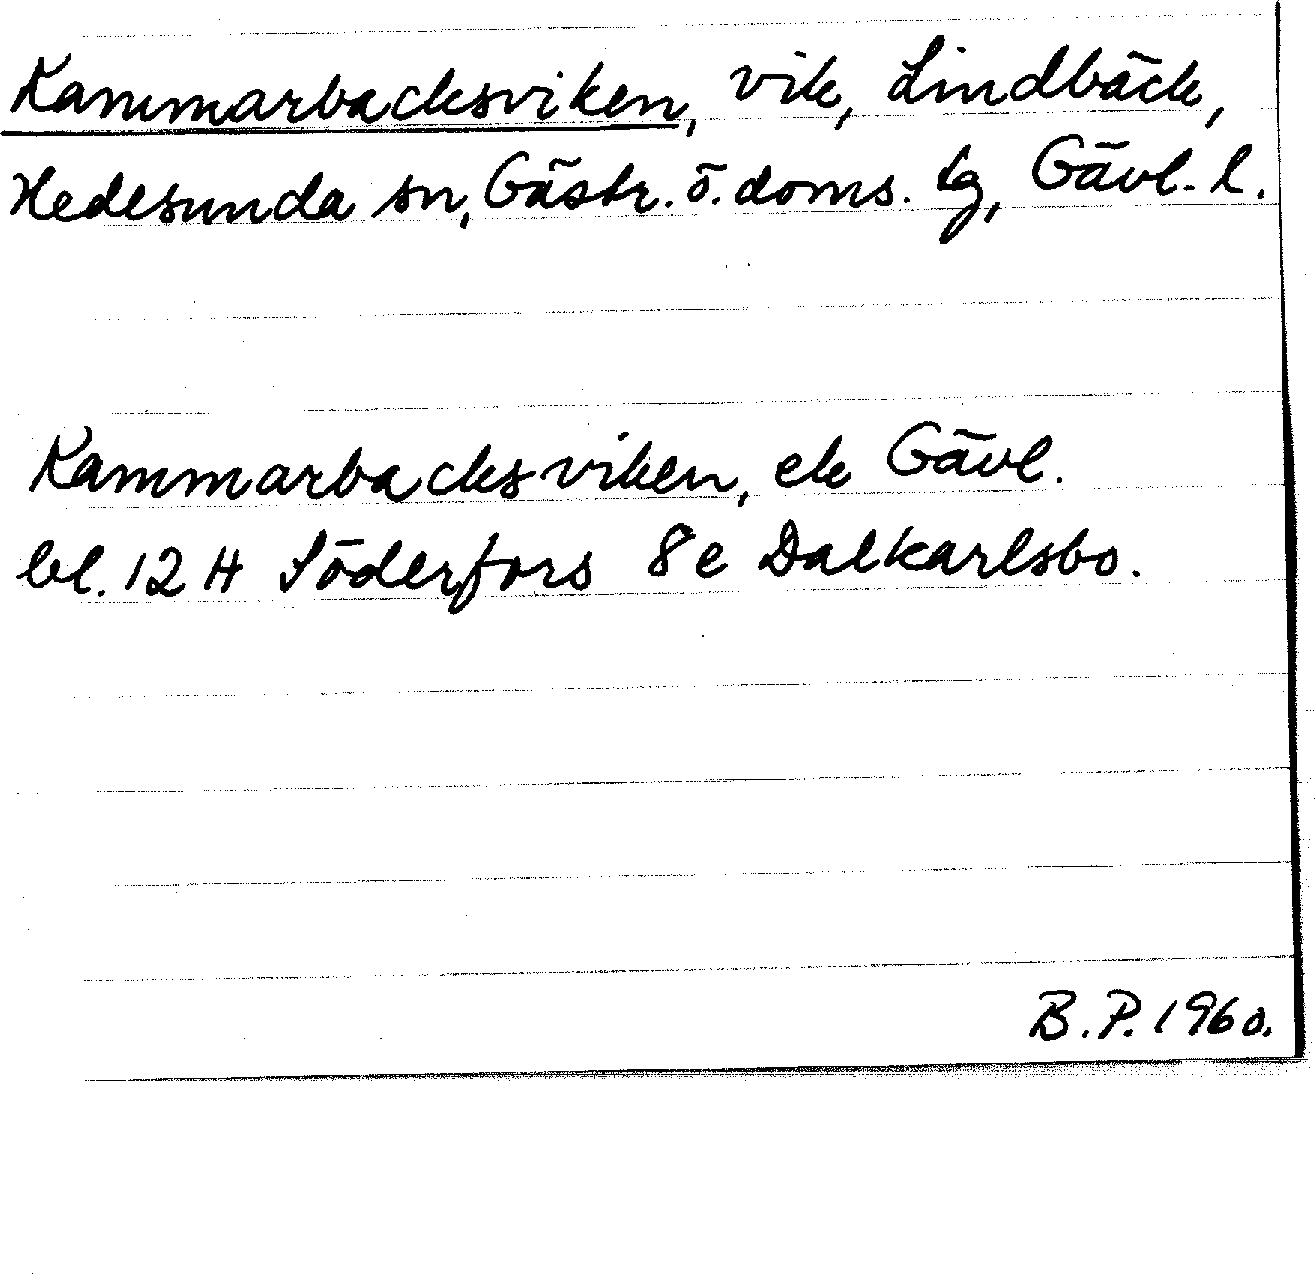 Kammarbacksviken, vik, Lindbäck,
Hedesunda sn, Gästr. ö. doms. tg, Gävl. l.
Kammarbacksviken, ek Gävl.
bl. 12 H Söderfors 8 e Dalkarlsbo.
B.P. 1960.